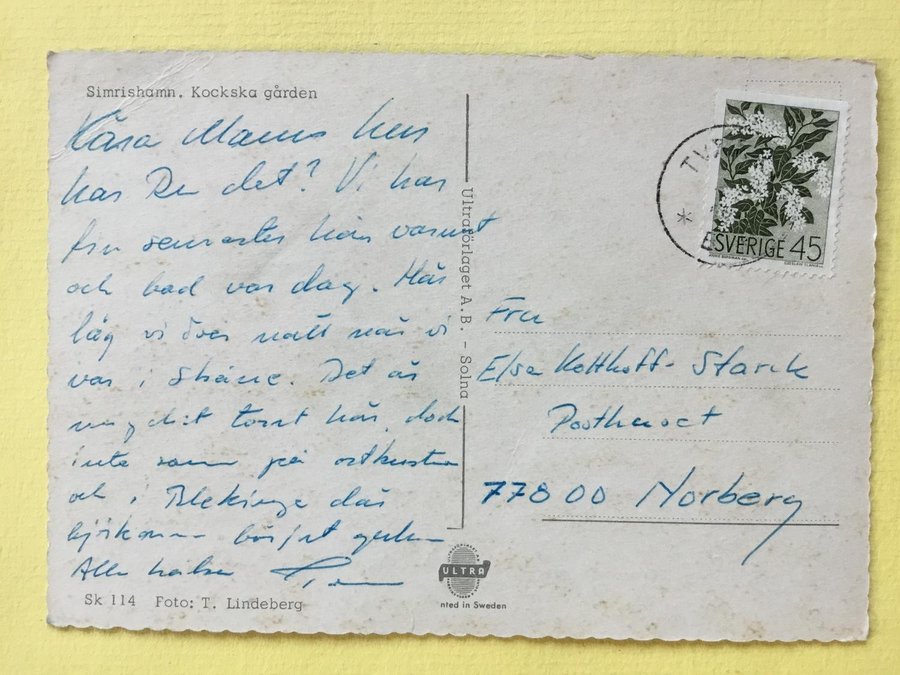 Simrishamn. Kockska gården
Kära Mams hur
har Du det? Vi har
fru här varmt
och bad var dag. Här
låg vi över natt när vi
var i Skåne. Det är
mycket torrt här, dock
inte som på ostkusten
och i Blekinge där
björkarna börjat gulna
Alla hälsar
Sk 114 Foto: T. Lindeberg
Ultraförlaget A.B. - Solna
ULTRA
nted in Sweden
SVERIGE 45
Fru
Elsa Kolthoff-Starck
Posthuset
77800 Norberg